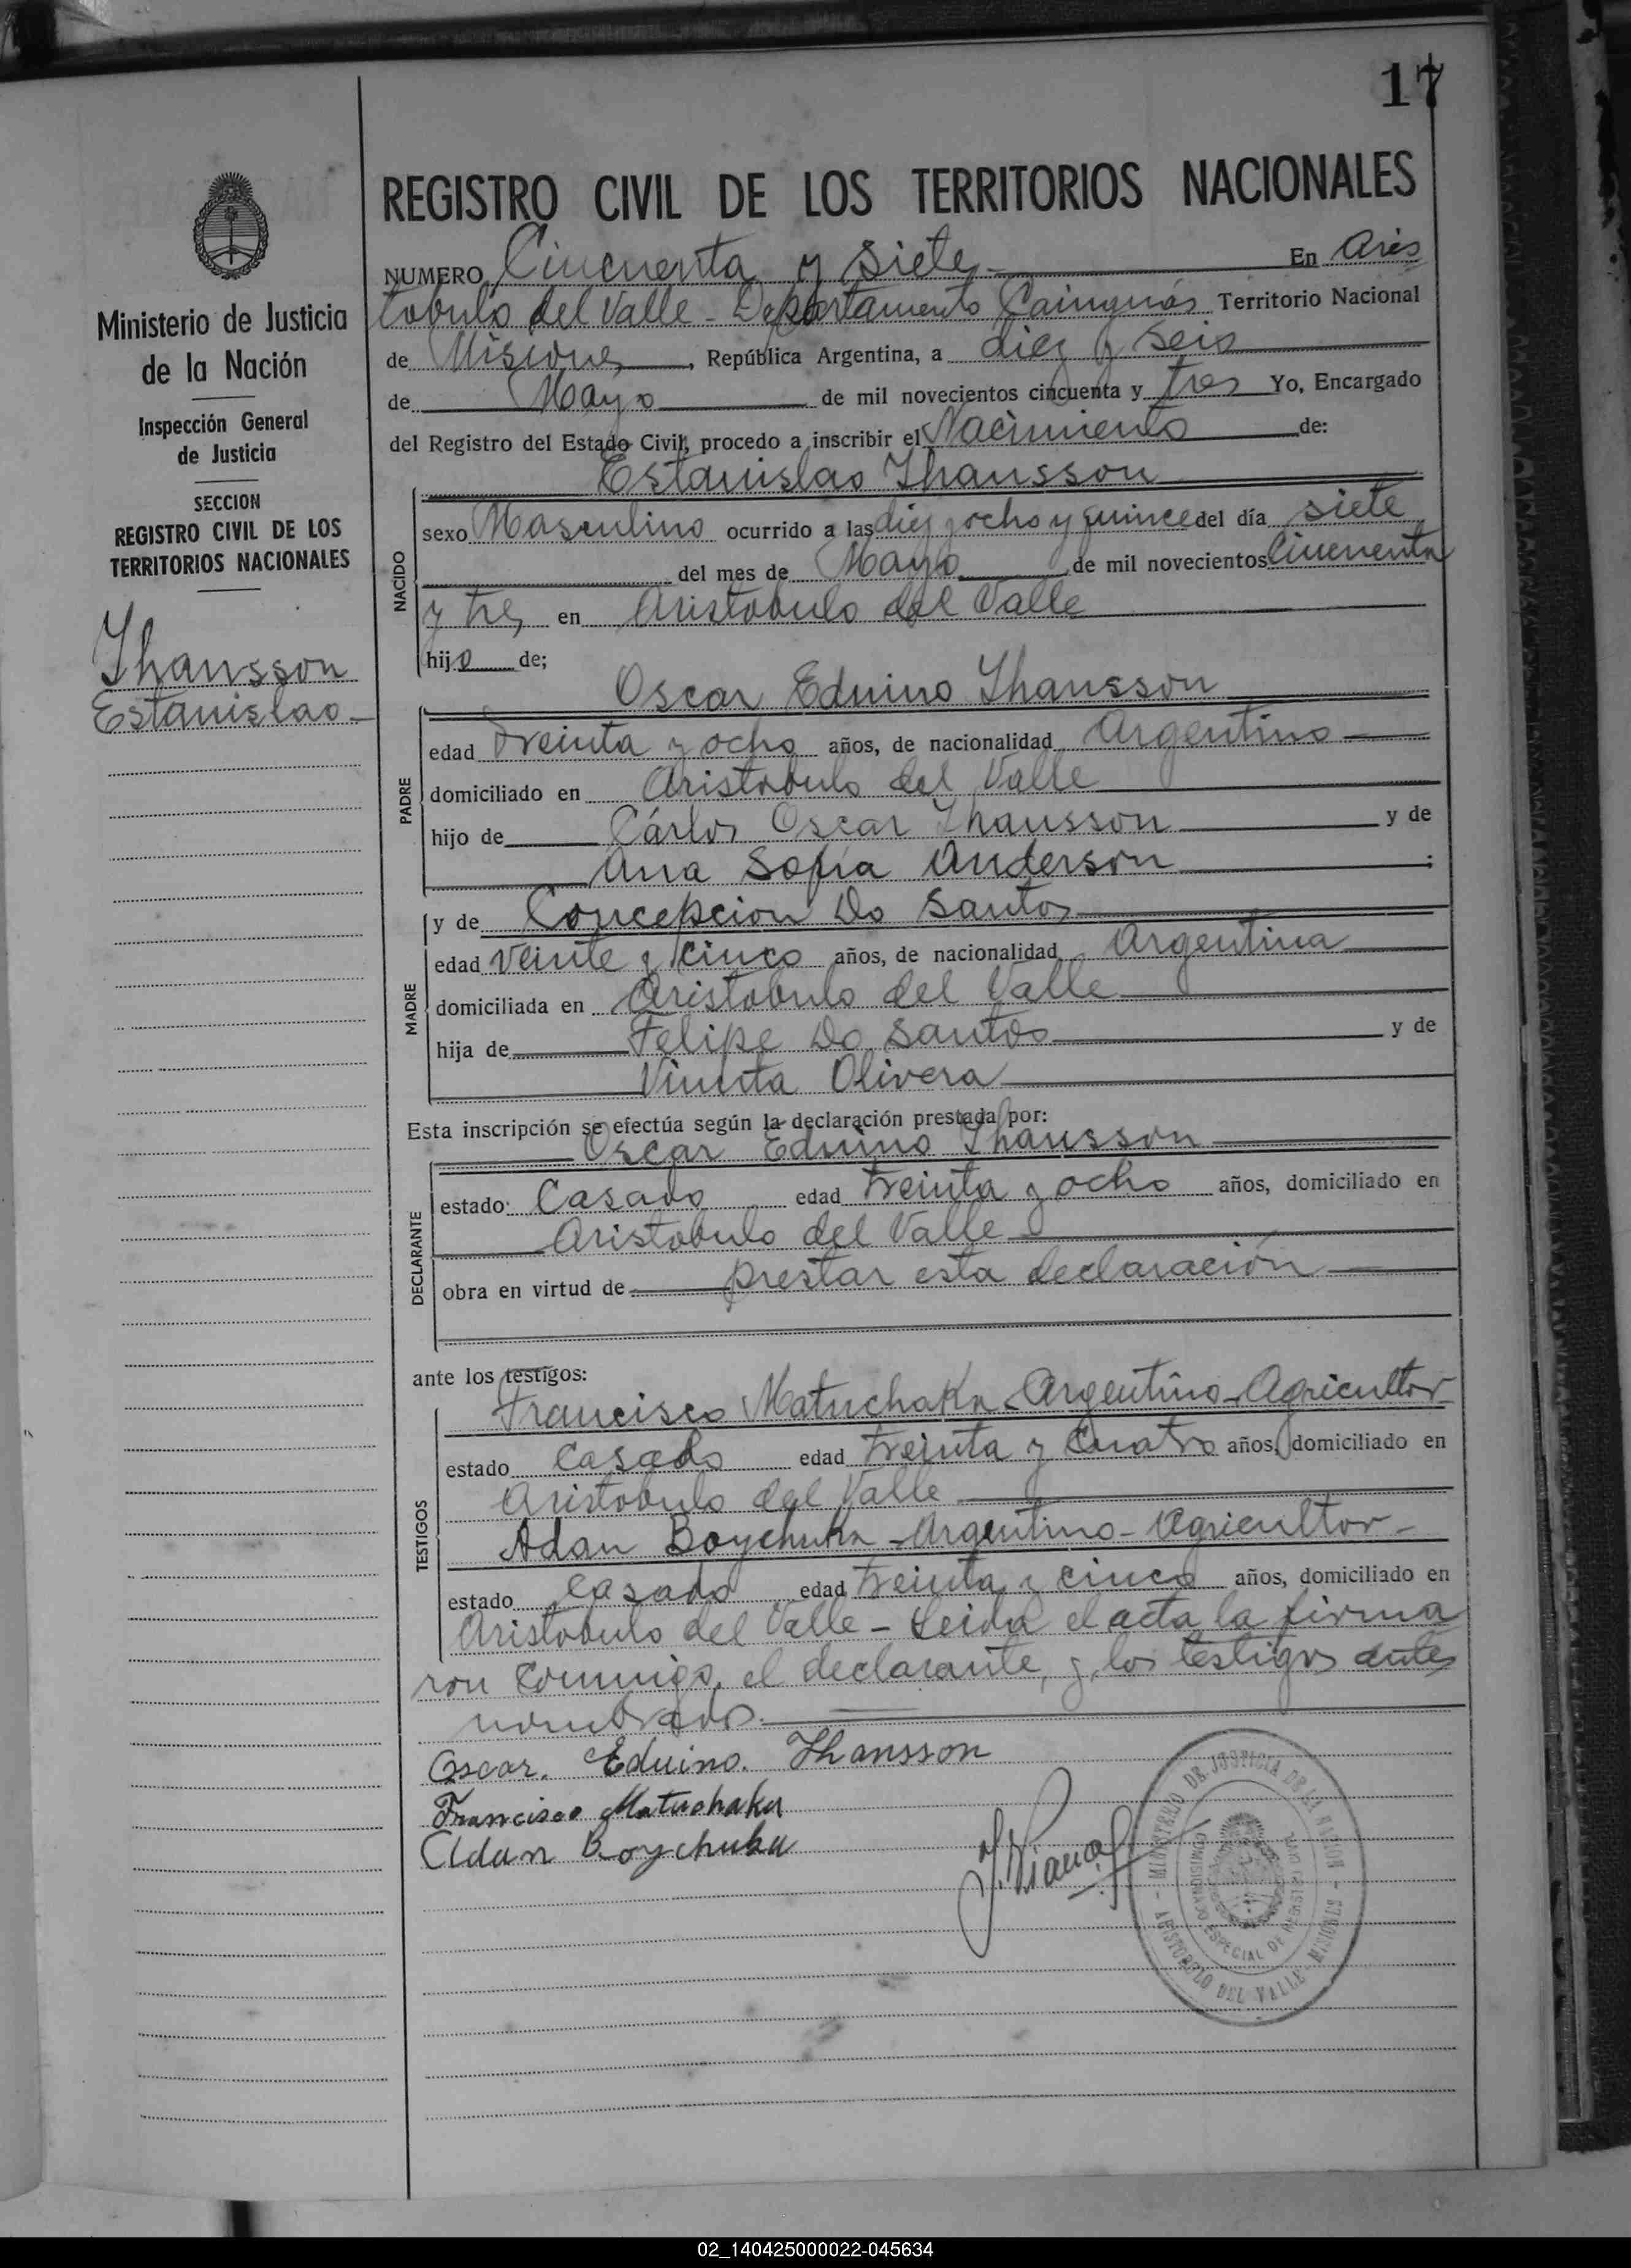 17
REGISTRO CIVIL DE LOS TERRITORIOS NACIONALES
NUMERO Cincuenta y siete En Aris
tobulo del Valle - Departamento Cainguás Territorio Nacional
de Misiones, República Argentina, a diez y seis
de Mayo de mil novecientos cincuenta y tres Yo, Encargado
del Registro del Estado Civil, procedo a inscribir el Nacimiento de:
Estanislao Thansson
NACIDO
sexo Masculino ocurrido a las diez y ocho y quince del día siete
del mes de Mayo de mil novecientos Cincuenta
y tres en Aristobulo del Valle
hijo de;
Oscar Eduino Thansson
PADRE
edad Treinta y ocho años, de nacionalidad Argentino
domiciliado en Aristobulo del Valle
hijo de Cárlos Oscar Thansson y de
Ana Sofía Anderson :
MADRE
y de Concepcion Do Santos
edad Veinte y cinco años, de nacionalidad Argentina
domiciliada en Aristobulo del Valle
hija de Felipe Do Santos y de
Olivera
Esta inscripción se efectúa según la declaración prestada por:
Oscar Eduino Thansson
DECLARANTE
estado: Casado edad treinta y ocho años, domiciliado en
Aristobulo del Valle
obra en virtud de prestar esta declaración
ante los testigos:
TESTIGOS
Francisco Matuchaka - Argentino - Agricultor
estado Casado edad treinta y cuatro años, domiciliado en
Aristobulo del Valle
Adan Boychuka - Argentino - Agricultor -
estado Casado edad treinta y cinco años, domiciliado en
Aristobulo del Valle - Leida el acta la firma
ron conmigo, el declarante, y los testigos antes
nombrados.
Oscar. Eduino. Thansson
Francisco Matuchaka
Adan Boychuka
MINISTERIO DE JUSTICIA DE LA NACION - ARISTOBULO DEL VALLE - MISIONES
COMISIONADO ESPECIAL DE REGISTRO CIVIL
Ministerio de Justicia
de la Nación
Inspección General
de Justicia
SECCION
REGISTRO CIVIL DE LOS
TERRITORIOS NACIONALES
Thansson
Estanislao
02_140425000022-045634